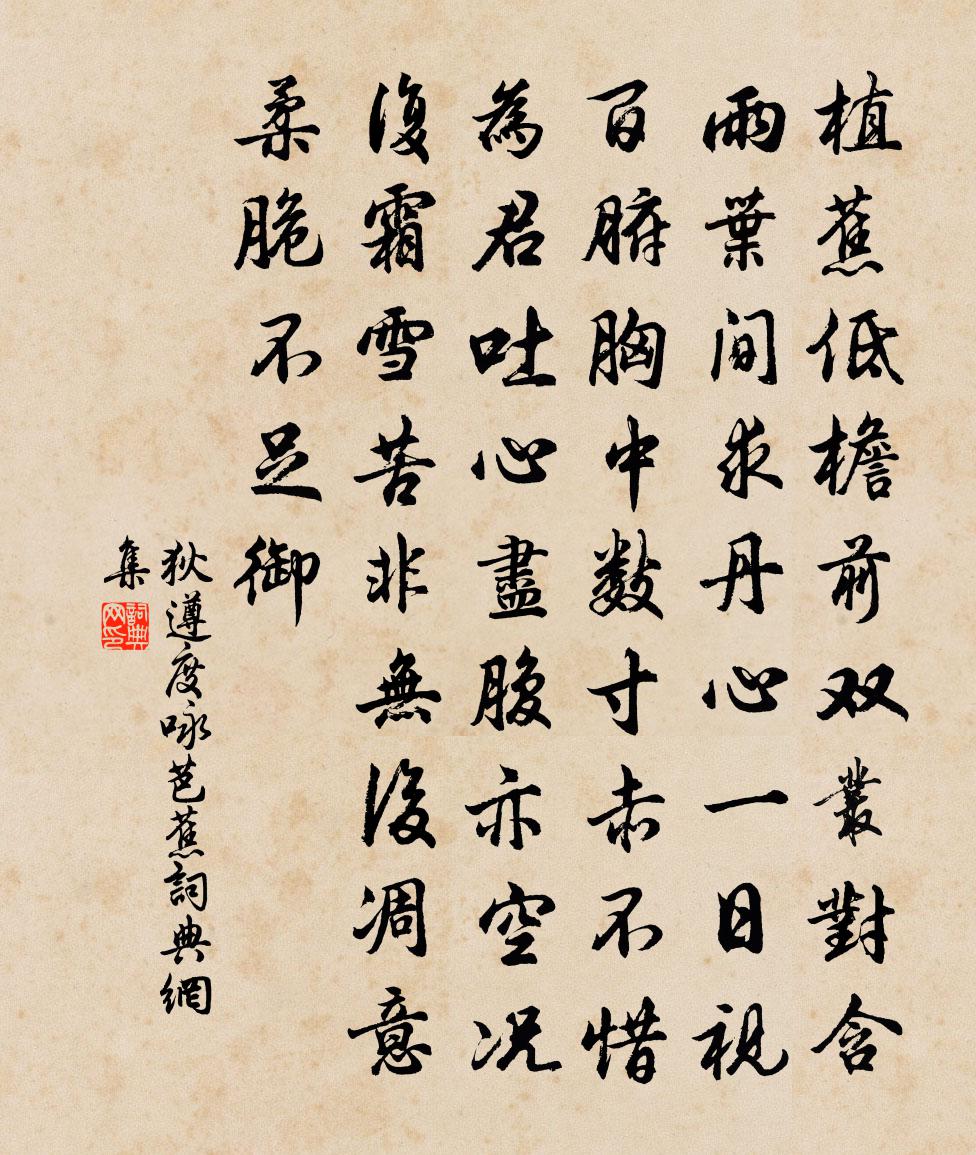 植蕉低檐前双叢對含
雨葉間求丹心一日視
百腑胸中数寸赤不惜
為君吐心盡腹亦空况
復霜雪苦非無後凋意
柔脆不足御
狄遵度咏芭蕉詞典網
集
詞典
网印